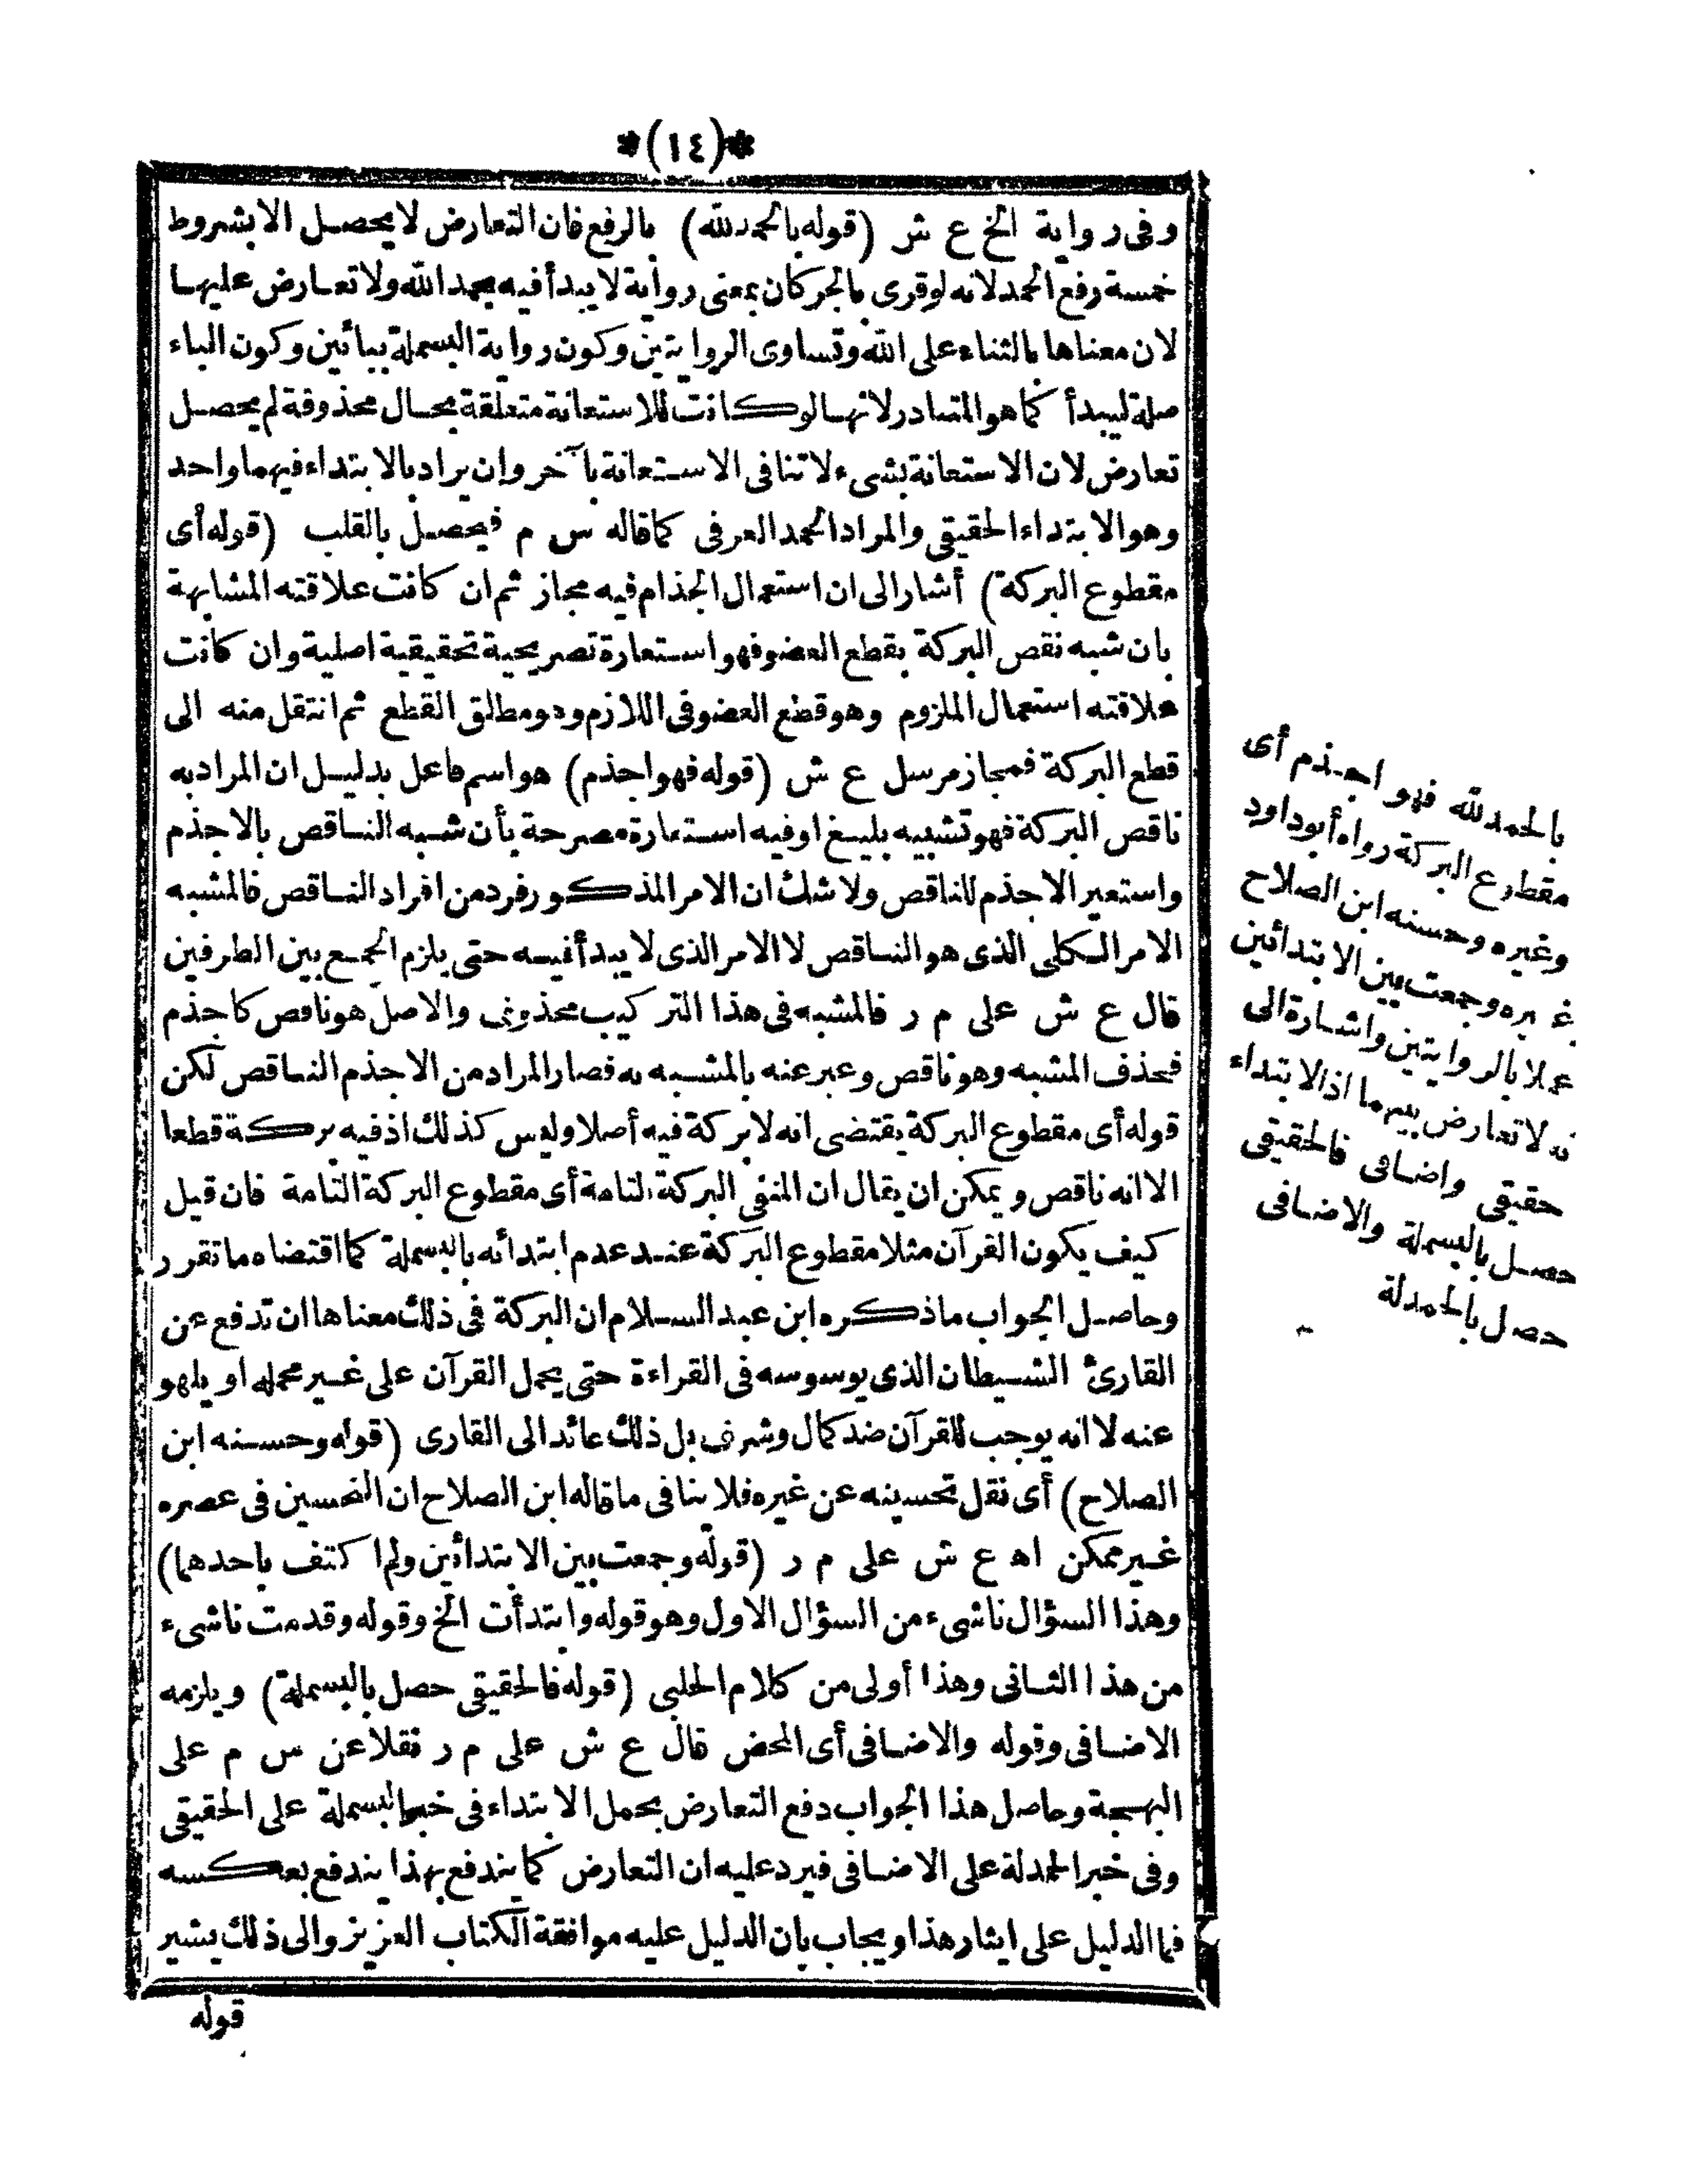 *(١٤)*
وفى رواية الخ ع ش (قوله بالحمد لله) بالرفع فان التعارض لا يحصل الا بشروط
خمسة رفع الحمد لانه لو قرى بالجر كان بمعنى رواية لا يبدأ فيه بحمد الله ولا تعارض عليها
لان معناها بالثناء على الله وتساوى الروايتين وكون رواية البسملة ببائين وكون الباء
صلة ليبدأ كما هو المتبادر لانها لو كانت للاستعانة متعلقة بحال محذوفة لم يحصل
تعارض لان الاستعانة بشىء لا تنافى الاستعانة بآخر وان يراد بالابتداء فيهما واحد
وهو الابتداء الحقيقى والمراد الحمد العرفى كما قاله س م فيحصل بالقلب (قوله أى
مقطوع البركة) أشار الى ان استعمال الجذام فيه مجاز ثم ان كانت علاقته المشابهة
بان شبه نقص البركة بقطع العضو فهو استعارة تصريحية تحقيقية اصلية وان كانت
علاقته استعمال الملزوم وهو قطع العضو فى اللازم وهو مطلق القطع ثم انتقل منه الى
قطع البركة فمجاز مرسل ع ش (قوله فهو اجذم) هو اسم فاعل بدليل ان المراد به
ناقص البركة فهو تشبيه بليغ او فيه استعارة مصرحة بأن شبه الناقص بالاجذم
واستعير الاجذم للناقص ولا شك ان الامر المذكور فرد من افراد الناقص فالمشبه
الامر الكلى الذى هو الناقص لا الامر الذى لا يبدأ فيه حتى يلزم الجمع بين الطرفين
قال ع ش على م ر فالمشبه فى هذا التركيب محذوف والاصل هو ناقص كاجذم
فحذف المشبه وهو ناقص وعبر عنه بالمشبه به فصار المراد من الاجذم الناقص لكن
قوله أى مقطوع البركة يقتضى انه لا بركة فيه أصلا وليس كذلك اذ فيه بركة قطعا
الا انه ناقص ويمكن ان يقال ان المنفى البركة التامة أى مقطوع البركة التامة فان قيل
كيف يكون القرآن مثلا مقطوع البركة عند عدم ابتدائه بالبسملة كما اقتضاه ما تقرر
وحاصل الجواب ما ذكره ابن عبد السلام ان البركة فى ذلك معناها ان تدفع عن
القارئ الشيطان الذى يوسوسه فى القراءة حتى يحمل القرآن على غير محمله او يلهو
عنه لا انه يوجب للقرآن ضد كمال وشرف بل ذلك عائد الى القارى (قوله وحسنه ابن
الصلاح) أى نقل تحسينه عن غيره فلا ينافى ما قاله ابن الصلاح ان التحسين فى عصره
غير ممكن اه ع ش على م ر (قوله وجمعت بين الابتدائين ولم اكتف باحدهما)
وهذا السؤال ناشىء من السؤال الاول وهو قوله وابتدأت الخ وقوله وقدمت ناشىء
من هذا الثانى وهذا أولى من كلام الحلبى (قوله فالحقيقى حصل بالبسملة) ويلزمه
الاضافى وقوله والاضافى أى المحض قال ع ش على م ر نقلا عن س م على
البهجة وحاصل هذا الجواب دفع التعارض بحمل الابتداء فى خبر البسملة على الحقيقى
وفى خبر الحمدلة على الاضافى فيرد عليه ان التعارض كما يندفع بهذا يندفع بعكسه
فما الدليل على ايثار هذا ويجاب بان الدليل عليه موافقة الكتاب العزيز والى ذلك يشير
قوله
بالحمد لله فهو اجذم أى
مقطوع البركة رواه أبو داود
وغيره وحسنه ابن الصلاح
غيره وجمعت بين الابتدائين
عملا بالروايتين واشارة الى
انه لا تعارض بينهما اذ الابتداء
حقيقى واضافى فالحقيقى
حصل بالبسملة والاضافى
حصل بالحمدلة